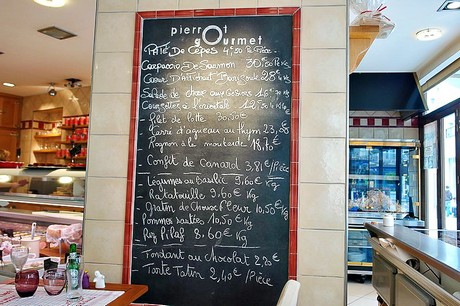 pierrot
gourmet
Paté De Cèpes 4,50 € Pièce
Carpaccio De Saumon 30
Coeur D'Artichaut Barigoule 28
Salade de choux aux
Courgettes à l'orientale 12,30 € Kg
filet de lotte 30,50 €
Carré d'agneau au thym 23,
Rognon à la moutarde 18,70 €
Confit de Canard 3,81 €/Pièce
Légumes au Basilic 9,60 € Kg
Ratatouille 9,60 € Kg
Gratin de Choux Fleur 10,50 € Kg
Pommes sautées 10,50 € Kg
Riz Pilaf 8,60 € Kg
Fondant au Chocolat 22 €
Tarte Tatin 2,40 €/Pièce